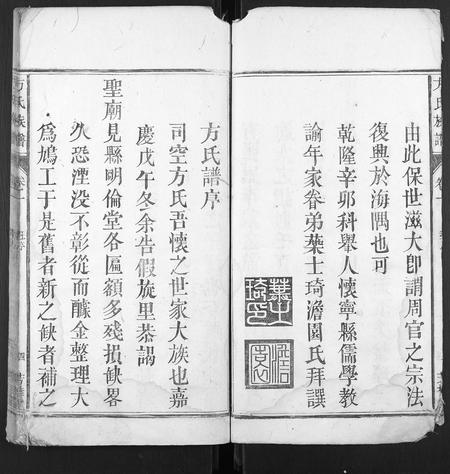 由此保世滋大即謂周官之宗法
復興於海隅也可
乾隆辛卯科舉人懷寧縣儒學教
諭年家眷弟葉士琦澹園氏拜譔
方氏族譜
卷一
方氏譜序
司空方氏吾懷之世家大族也嘉
慶戊午冬余告假旋里恭謁
聖廟見縣明倫堂各匾額多殘損缺畧
久恐湮没不彰從而醵金整理大
為鳩工于是舊者新之缺者補之
方氏族譜
卷一
四